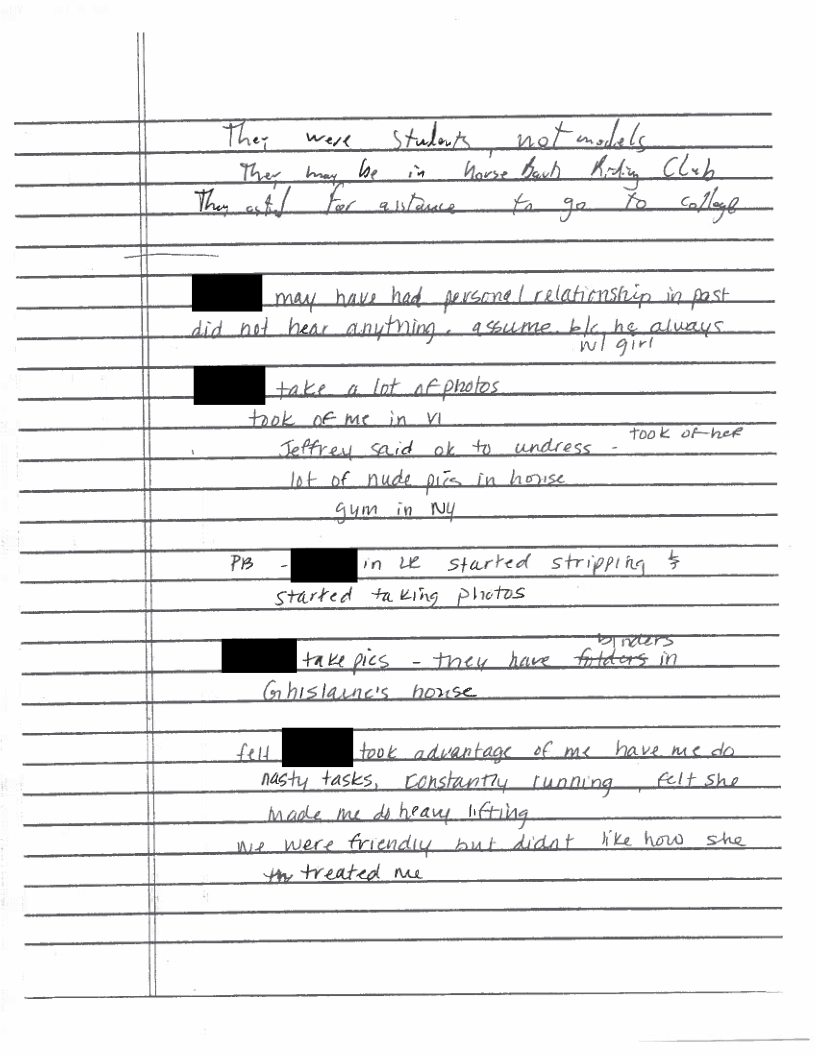 They were students, not models
They may be in Horse Back Riding Club
They asked for asistance to go to college
may have had personal relationship in past
did not hear anything. assume b/c he always
w/ girl
take a lot of photos
took of me in VI
Jeffrey said ok to undress - took of her
lot of nude pics in house
gym in NY
PB - in started stripping &
started taking photos
binders
take pics - they have folders in
Ghislaine's house
felt took advantage of me have me do
nasty tasks, constantly running, felt she
made me do heavy lifting
we were friendly but didnt like how she
treated me